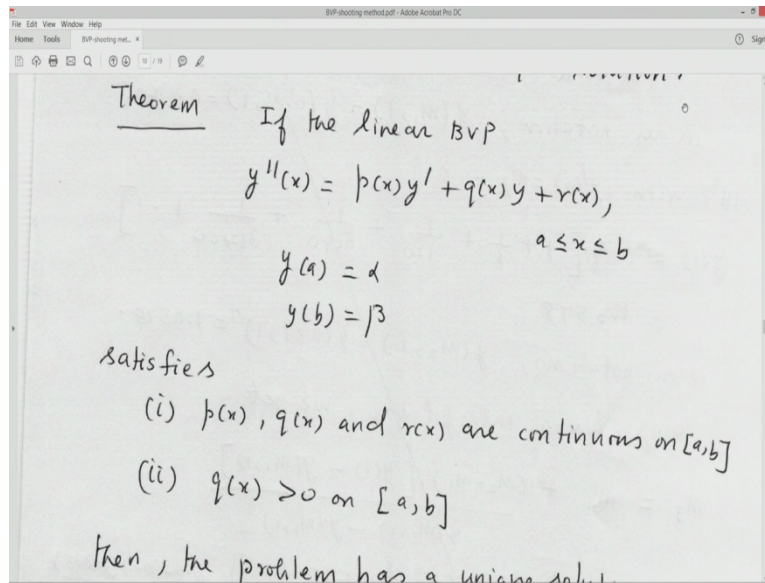 BVP-shooting method.pdf - Adobe Acrobat Pro DC
File Edit View Window Help
Home Tools BVP-shooting met... x Sign
Theorem If the linear BVP
y''(x) = p(x)y' + q(x)y + r(x),
a ≤ x ≤ b
y(a) = α
y(b) = β
satisfies
(i) p(x), q(x) and r(x) are continuous on [a,b]
(ii) q(x) >0 on [a,b]
then, the problem has a unique